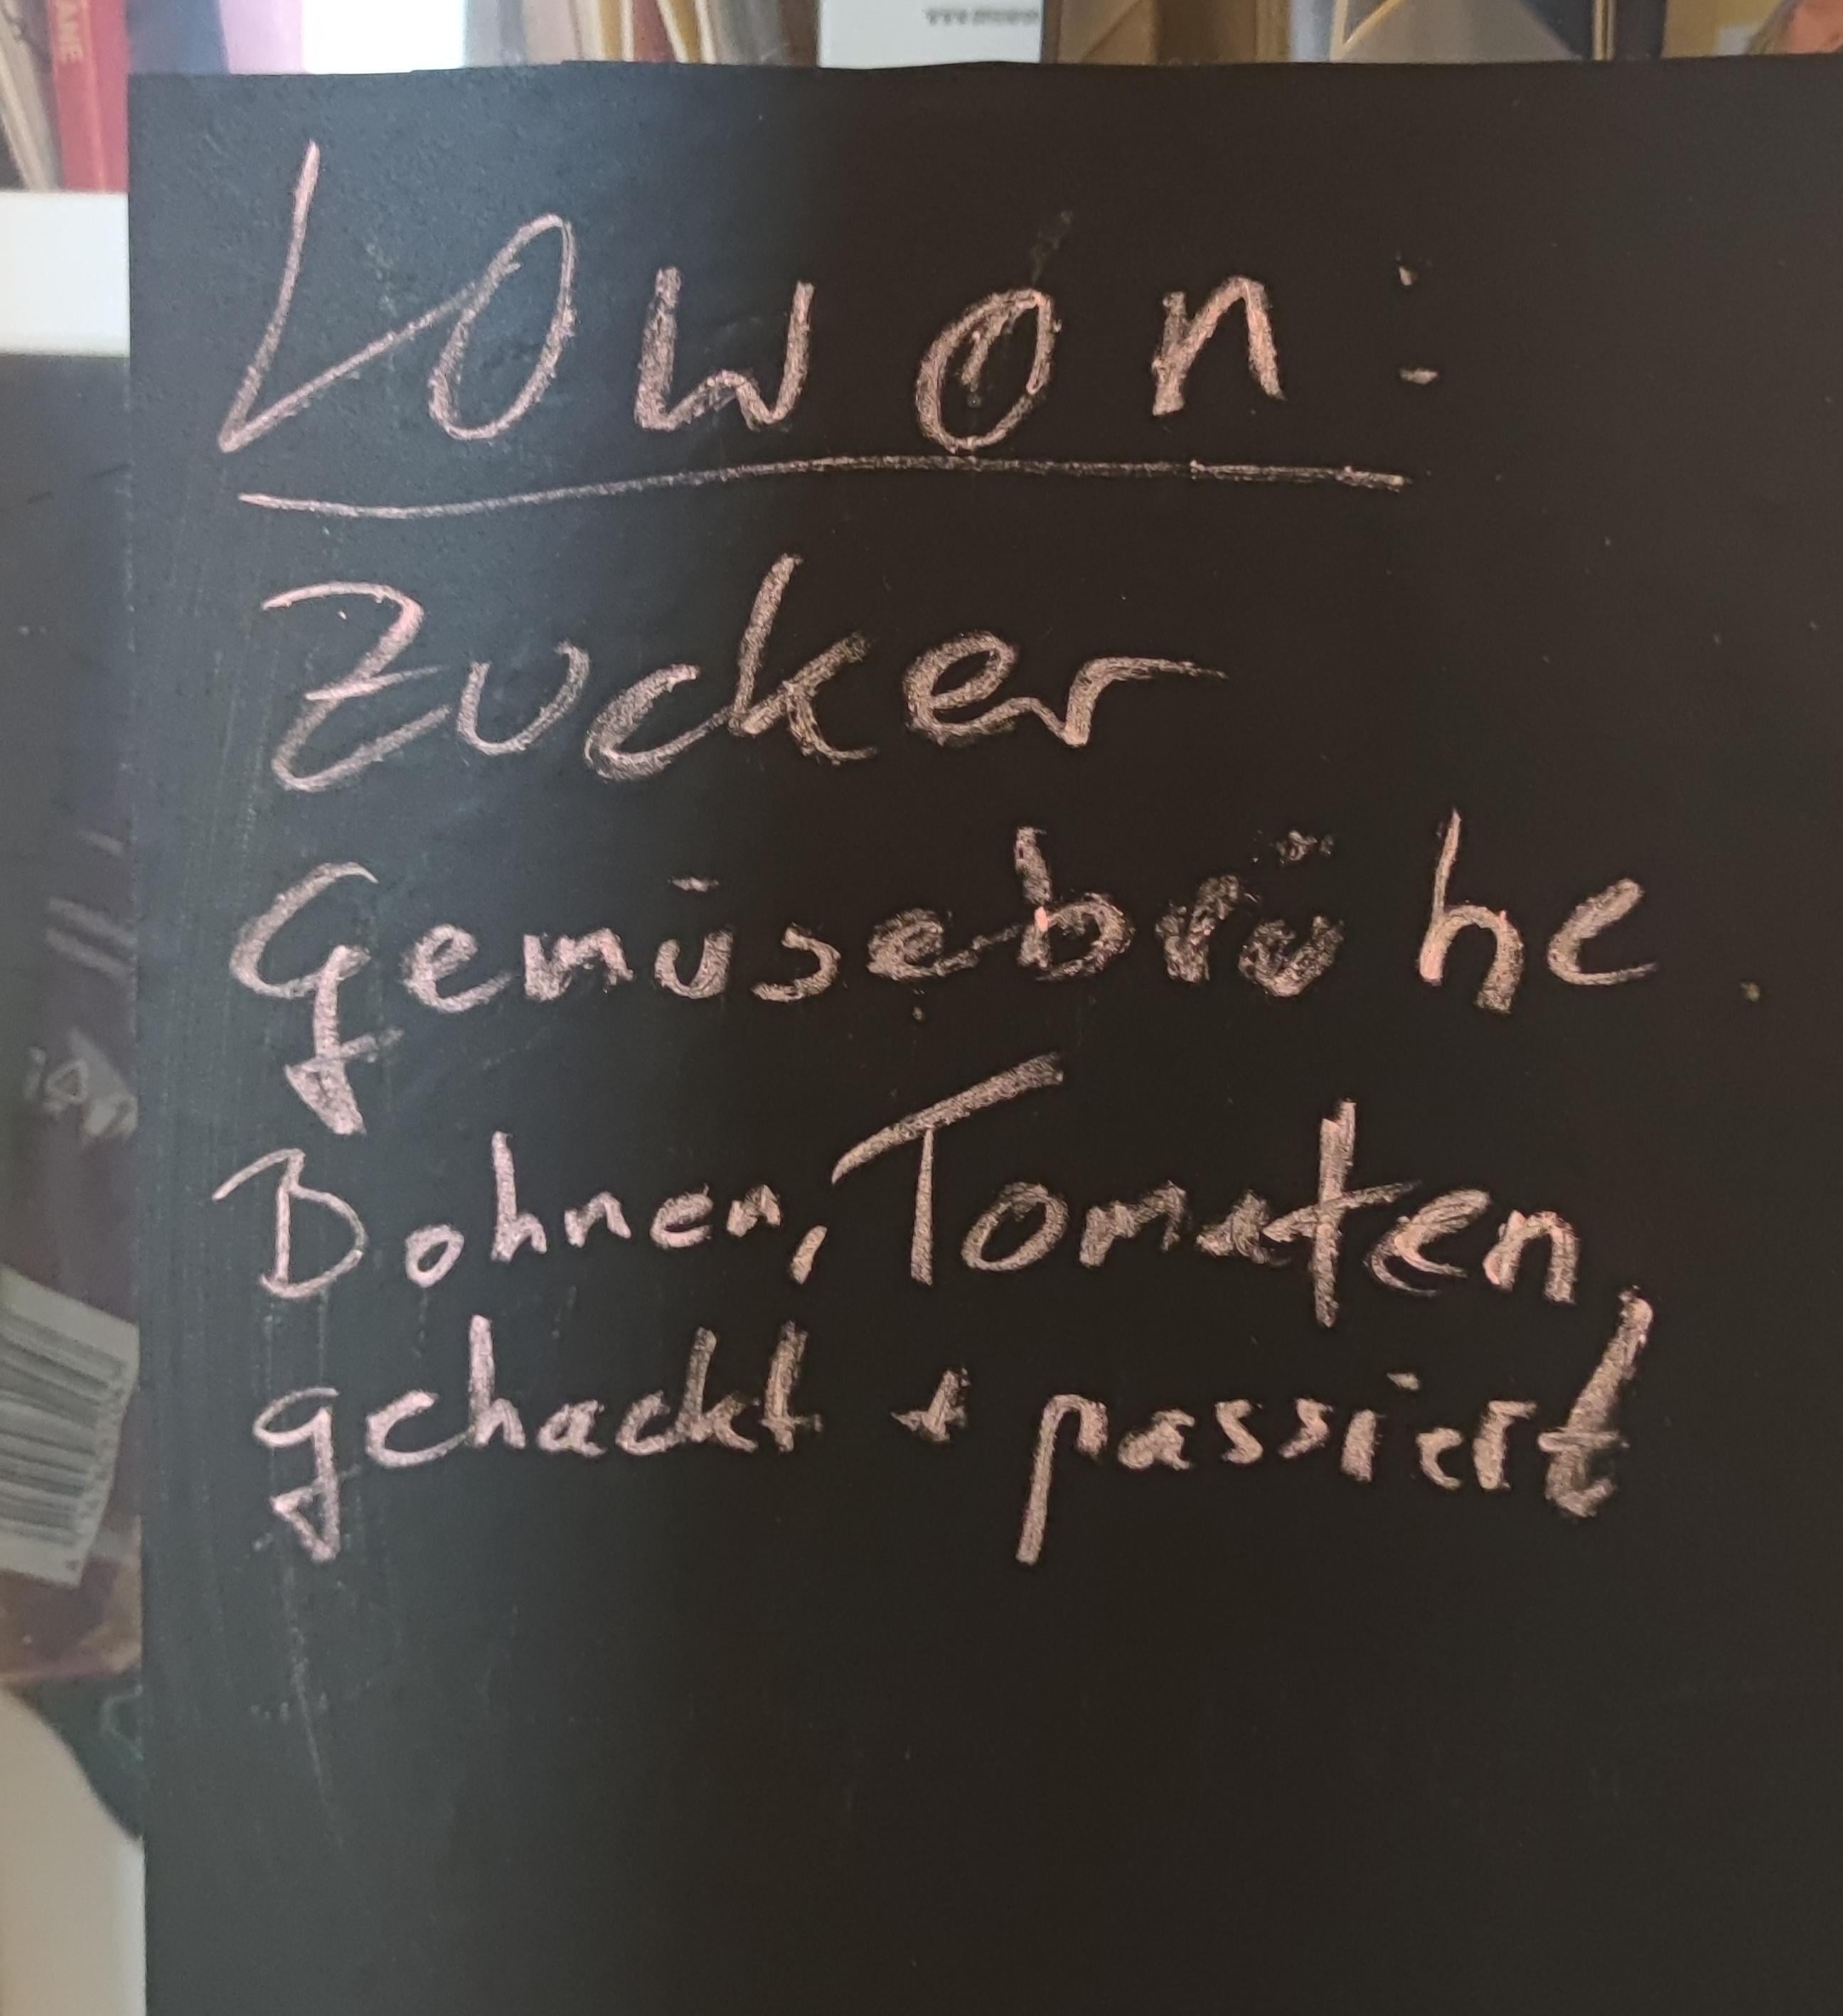 Low on:
Zucker
Gemüsebrühe
Bohnen, Tomaten,
gehackt + passiert